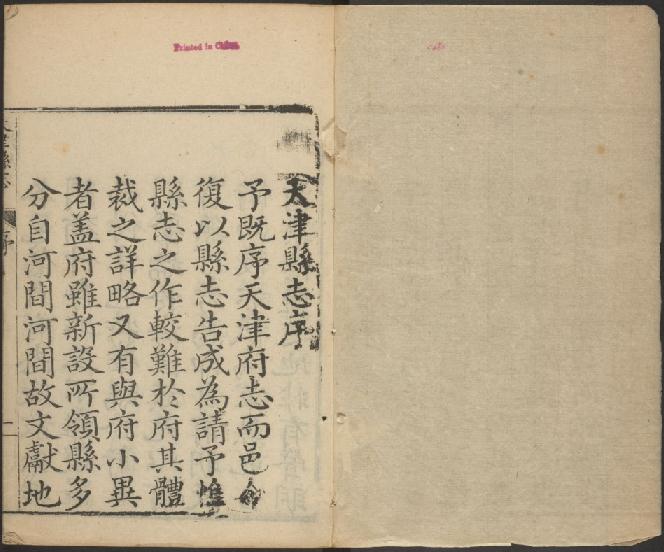 Printed in China
天津縣志序
予既序天津府志而邑令
復以縣志告成為請予惟
縣志之作較難於府其體
裁之詳略又有與府小異
者盖府雖新設所領縣多
分自河間河間故文獻地
天津縣志
序